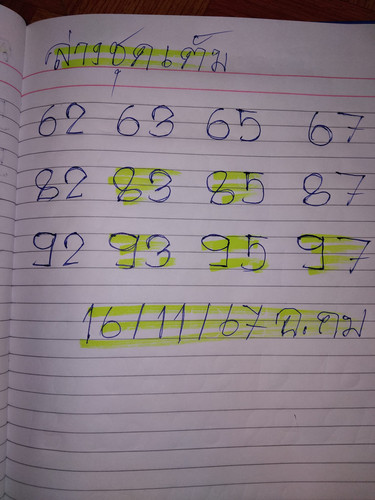 ล่างชุดเต้ม
62 63 65 67
82 83 85 87
92 93 95 97
16/11/67